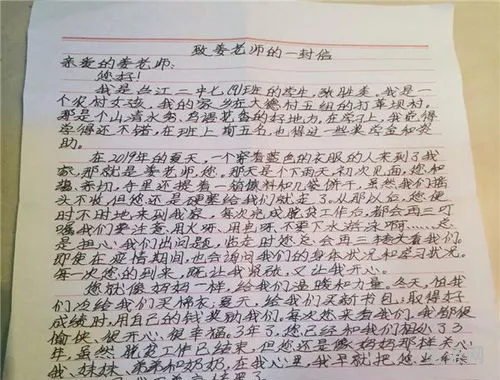 致娄老师的一封信
亲爱的娄老师：
您好！
我是丝江二中七(9)班的学生，张胜美。我是一
个农村女孩，我的家乡在大德村五组的打草坝村。
那是个山清水秀，鸟语花香的好地方。在学习上，我觉得
学得还不错，在班上前五名，也得过一些奖学金和资
助。
在2019年的夏天，一个穿着蓝色的衣服的人来到了我
家，那就是娄老师，您。那天是个下雨天，初次见面，您和
蔼、亲切，手里还提着一箱饮料和几袋饼干，虽然我们摇
头不收，但您还是硬塞给我们就走了。从那以后，您便
时不时地来到我家，每次完成脱贫工作后，都会再三叮
嘱我们要注意：用火呀、用电呀、不要下水游泳啊……总
是担心我们出问题，临走时您总会再三
即使在疫情期间，也会询问我们的身体状况和学习状况。
每一次您的到来，既让我紧张，又让我开心。
您就像妈妈一样，给我们温暖和力量。冬天，怕我
们冷给我们买棉衣；夏天，给我们买新书包；取得好
成绩时，用自己的钱奖励我们。每次您来看我们，我都很
愉快、很开心、很幸福。3年了，您已经和我们相处了3
年，虽然脱贫工作已结束，但您还是像妈妈那样关心
我、妹妹、弟弟和奶奶，在我心里，我早就把您当